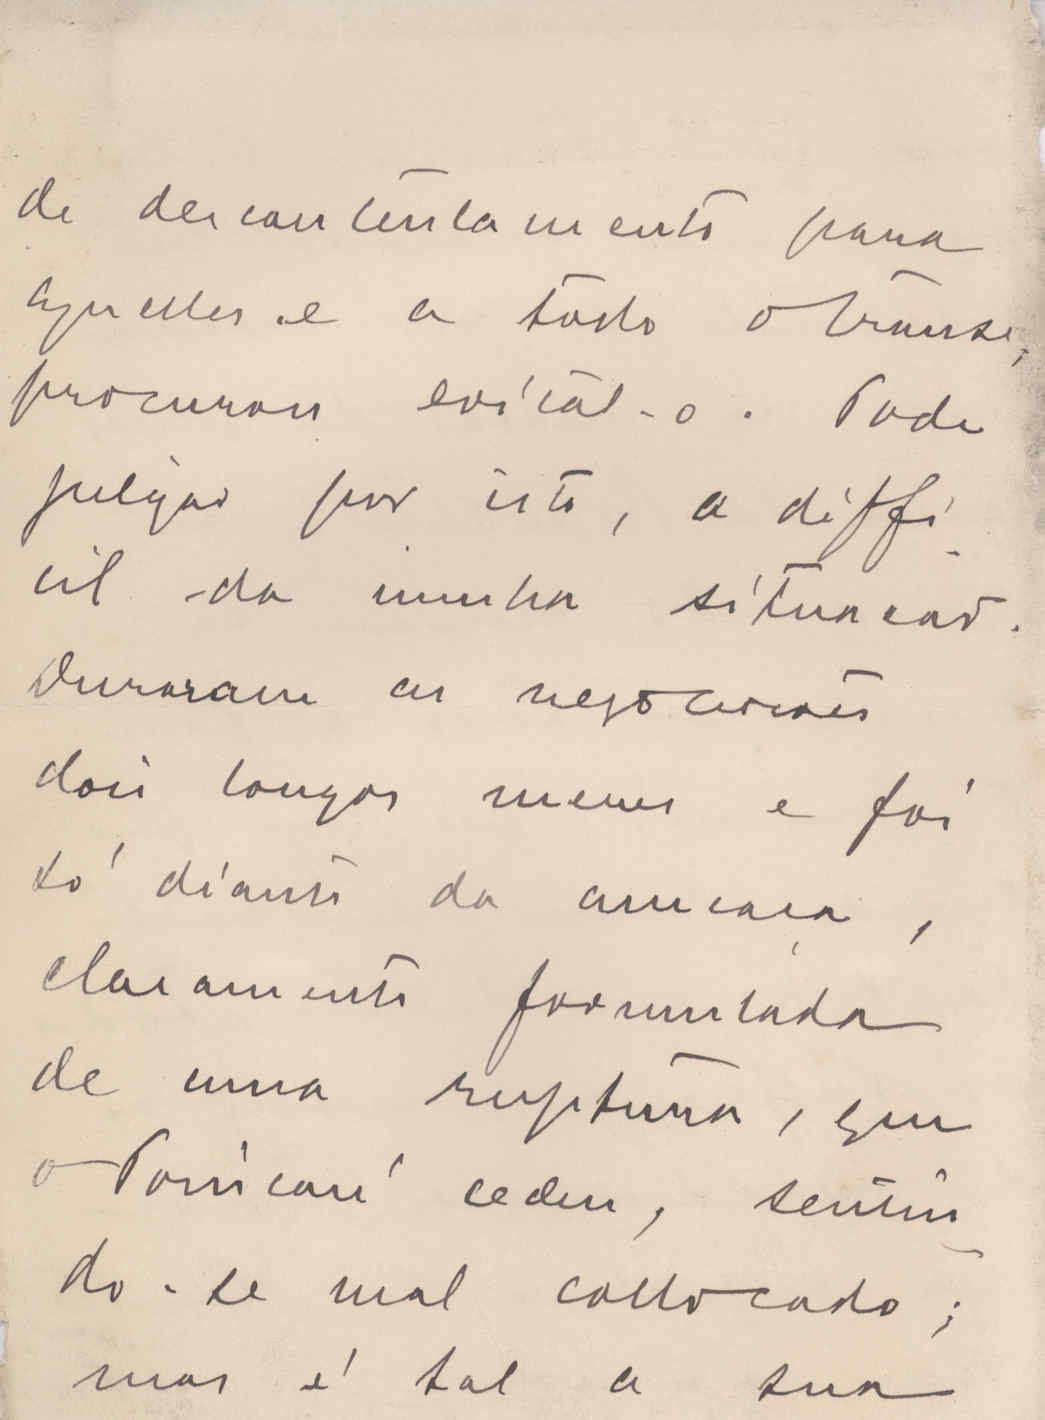 de descontentamento para
aquelles e a todo o transe,
procurou evital-o. Pode
julgar por isto, a diffi-
cil da minha situacao.
Duraram as negociações
dois longos mezes e foi
só diante da ameaça,
claramente formulada
de uma ruptura, que
o Poincaré cedeu, sentin-
do-se mal collocado;
mas é tal a sua